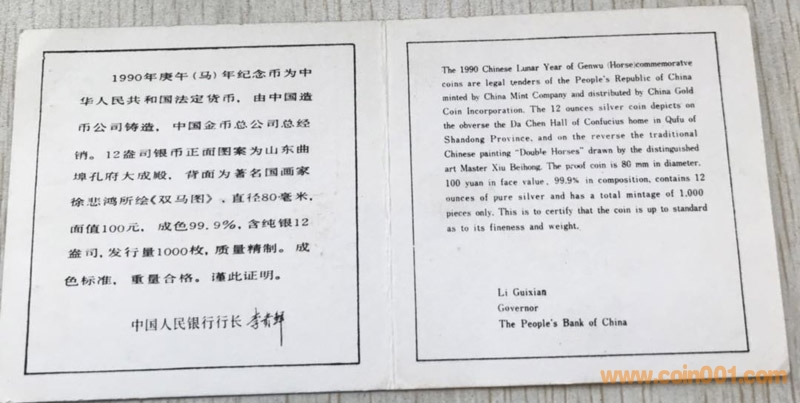 1990年庚午(马)年纪念币为中
华人民共和国法定货币，由中国造
币公司铸造，中国金币总公司总经
销。12盎司银币正面图案为山东曲
埠孔府大成殿，背面为著名国画家
徐悲鸿所绘《双马图》、直径80毫米，
面值100元，成色99.9%，含纯银12
盎司，发行量1000枚，质量精制。成
色标准，重量合格。谨此证明。
中国人民银行行长 李贵鲜
The 1990 Chinese Lunar Year of Genwu (Horse)commemoratve
coins are legal tenders of the People's Republic of China
minted by China Mint Company and distributed by China Gold
Coin Incorporation. The 12 ounces silver coin depicts on
the obverse the Da Chen Hall of Confucius home in Qufu of
Shandong Province, and on the reverse the traditional
Chinese painting "Double Horses" drawn by the distinguished
art Master Xiu Beihong. The proof coin is 80 mm in diameter,
100 yuan in face value, 99.9% in composition, contains 12
ounces of pure silver and has a total mintage of 1,000
pieces only. This is to certify that the coin is up to standard
as to its fineness and weight.
Li Guixian
Governor
The People's Bank of China
www.coin001.com